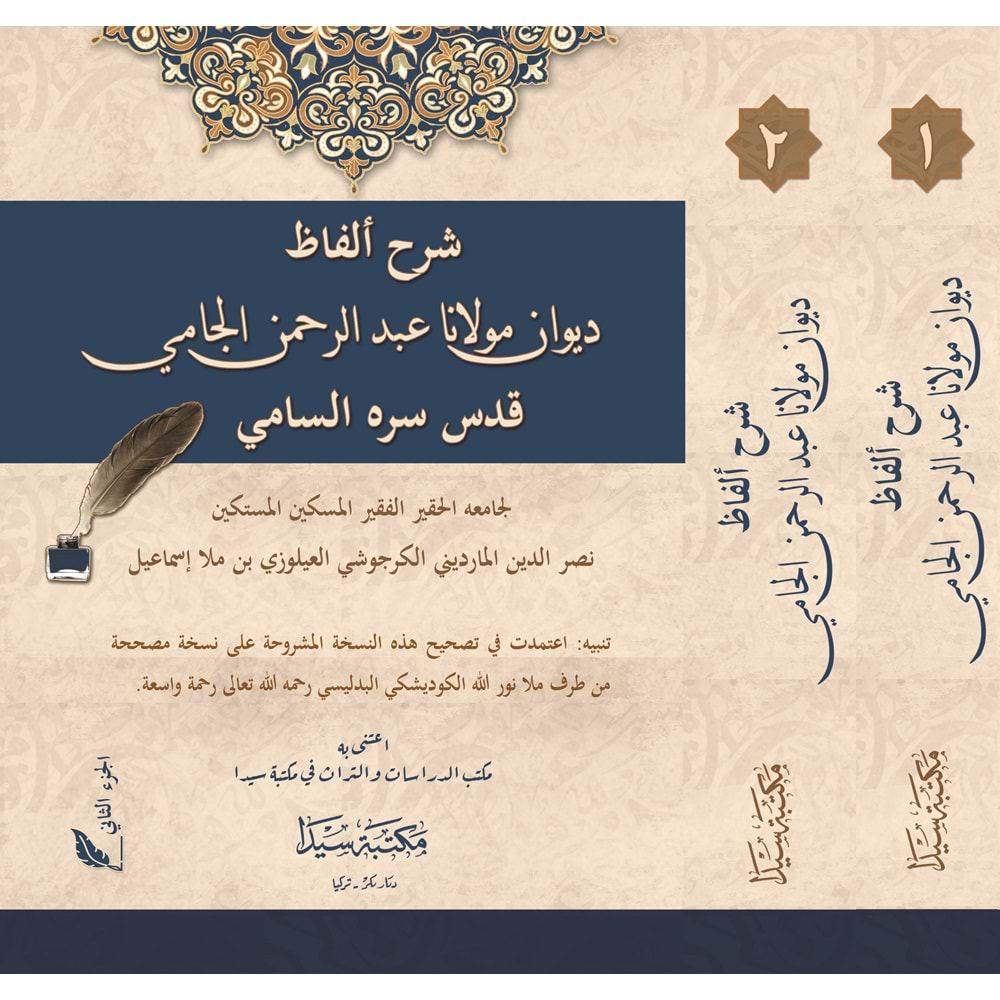 شرح ألفاظ
ديوان مولانا عبد الرحمن الجامي
قدس سره السامي
لجامعه الحقير الفقير المسكين المستكين
نصر الدين المارديني الكرجوشي العيلوزي بن ملا إسماعيل
تنبيه: اعتمدت في تصحيح هذه النسخة المشروحة على نسخة مصححة
من طرف ملا نور الله الكوديشكي البدليسي رحمه الله تعالى رحمة واسعة.
اعتنى به
مكتب الدراسات والتراث في مكتبة سيدا
مكتبة سيدا
ديار بكر - تركيا
الجزء الثاني
٢
شرح ألفاظ
ديوان مولانا عبد الرحمن الجامي
مكتبة سيدا
١
شرح ألفاظ
ديوان مولانا عبد الرحمن الجامي
مكتبة سيدا